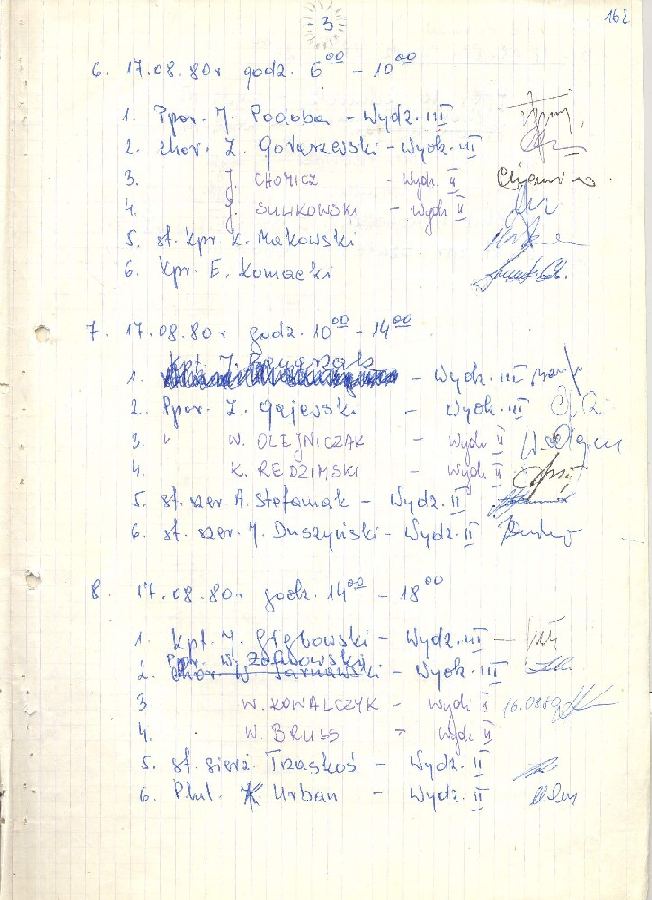 3
162
6. 17.08.80r godz. 6⁰⁰ - 10⁰⁰
1. Ppor. J. Pogoba - Wydz. III
2. chor. Z. Goraszewski - Wydz. III
3. J. CHOMICZ - Wydz. II
4. J. SULIKOWSKI - Wydz. II
5. st. kpr. K. Makowski
6. kpr. E. Komacki
7. 17.08.80r godz. 10⁰⁰ - 14⁰⁰
Kpt. J.
1. - Wydz. III
2. Ppor. Z. Gajewski - Wydz. III
3. W. OLEJNICZAK - Wydz. II
4. K. REDZIMSKI - Wydz. II
5. st. szer. A. Stefaniak - Wydz. II
6. st. szer. J. Duszyński - Wydz. II
8. 17.08.80r godz. 14⁰⁰ - 18⁰⁰
1. kpt. J. Głębowski - Wydz. III
Ppor. W.
2. chor. W. Tarnawski - Wydz. III
3 W. KOWALCZYK - Wydz. II 16.08.80
4. W. BRUSS - Wydz. II
5. st. sierż. Trzaskoś - Wydz. II
6. Plut. K Urban - Wydz. II